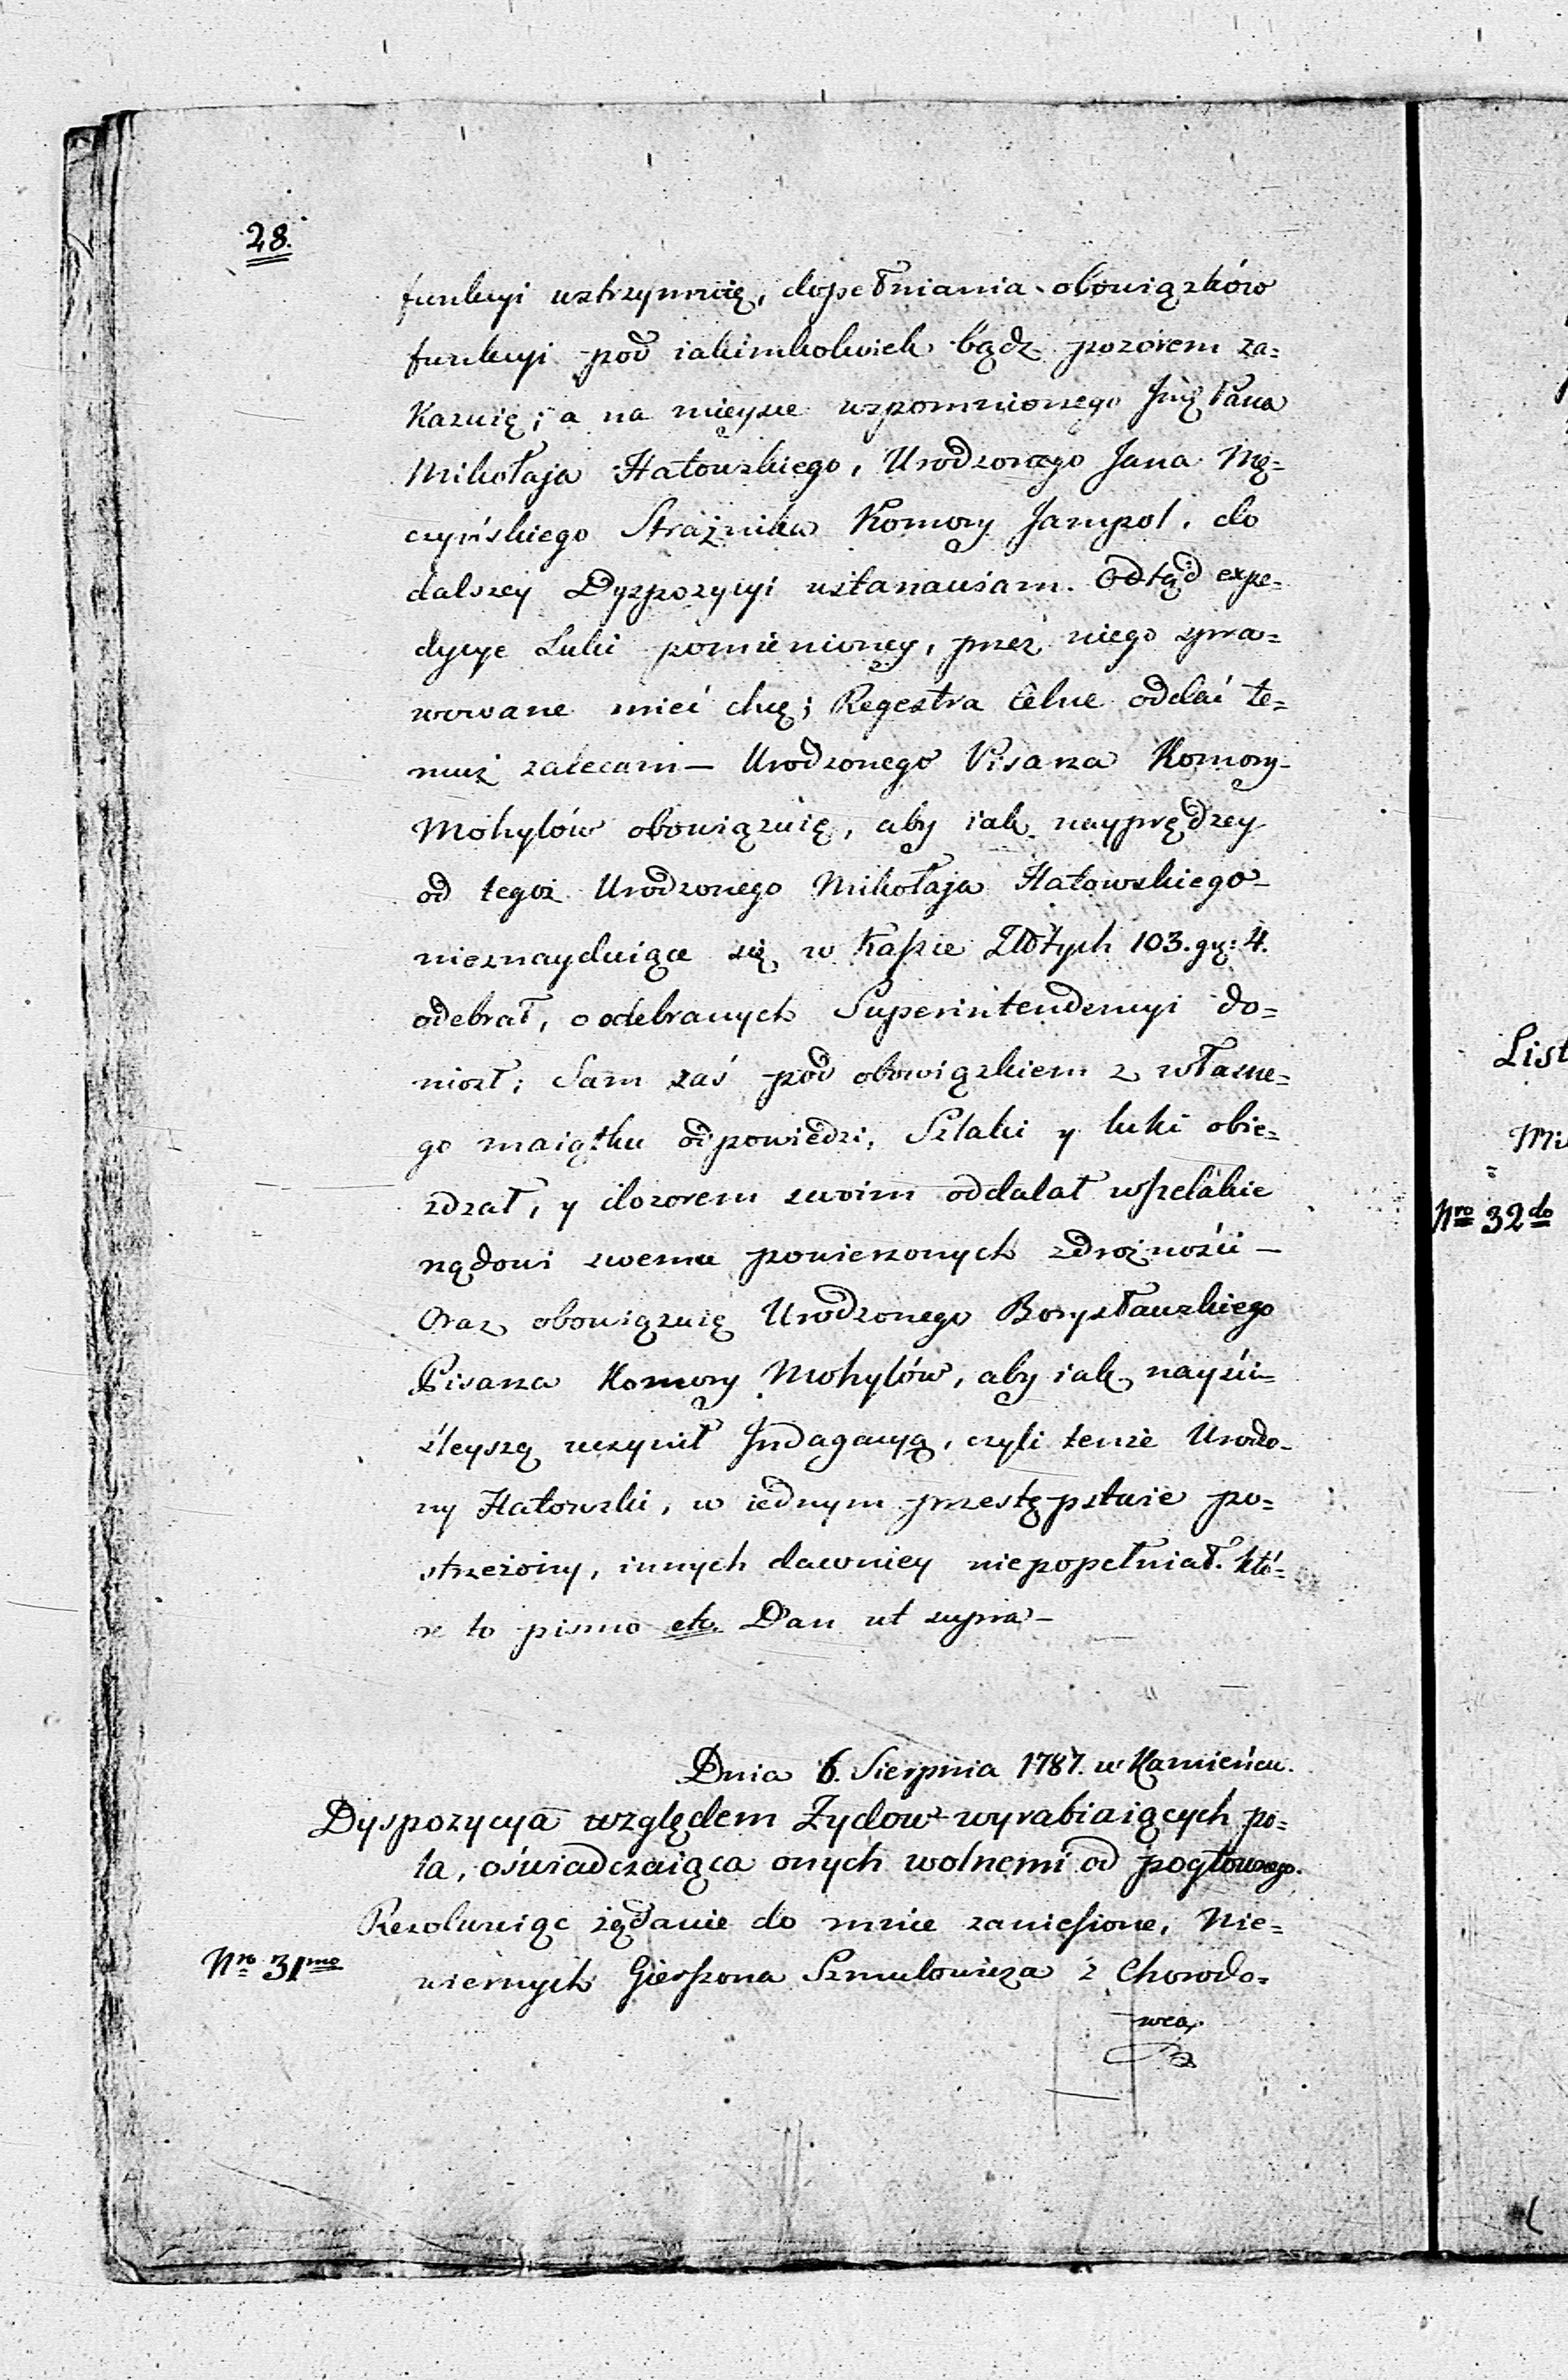 28.
funkcyi wstrzymuię, dopełniania obowiązków
funkcyi pod iakimkolwiek bądz pozorem za=
kazuię; a na mieysce wspomnionego Jmę Pana
Mikołaja Hałowskiego, Urodzonego Jana Mę=
czyńskiego Strażnika Komory Jampol. do
dalszey Dyspozycyi ustanawiam. Odtąd expe=
dycye Luki pomienioney, przez niego spra=
wowane mieć chcę; Regestra Celne oddać te=
muż zalecam — Urodzonego Pisarza Komory
Mohylów obowiązuię, aby iak nayprędzey
od tegoż Urodzonego Mikołaja Hałowskiego
nieznayduiące się w Kassie Złotych 103. gr: 4.
odebrał, o odebranych Superintendencyi do=
niosł; Sam zaś pod obowiązkiem z własne=
go maiątku odpowiedzi, Szlaki y luki obie=
zdzał, y dozorem swoim oddalał wszelakie
rządowi swemu powierzonych zdrożności —
Oraz obowiązuię Urodzonego Borysławskiego
Pisarza Komory Mohylów, aby iak nayści=
śleyszą uczynił Jndagacyą, czyli tenże Urodzo=
ny Hałowski, w iednym przestępstwie po=
strzeżony, innych dawniey niepopełniał. któ=
re to pismo etc. Dan ut supra —
Dnia 6. Sierpnia 1787. w Kamieńcu.
Dyspozycya względem Zydow wyrabiaiących po=
la, oświadczaiąca onych wolnemi od pogłownego.
Rezolwuiąc żądanie do mnie zaniesione, Nie=
Nro 31mo
wiernych Gierszona Szmulowicza z Chorodo=
wca,
List
Nro 32do